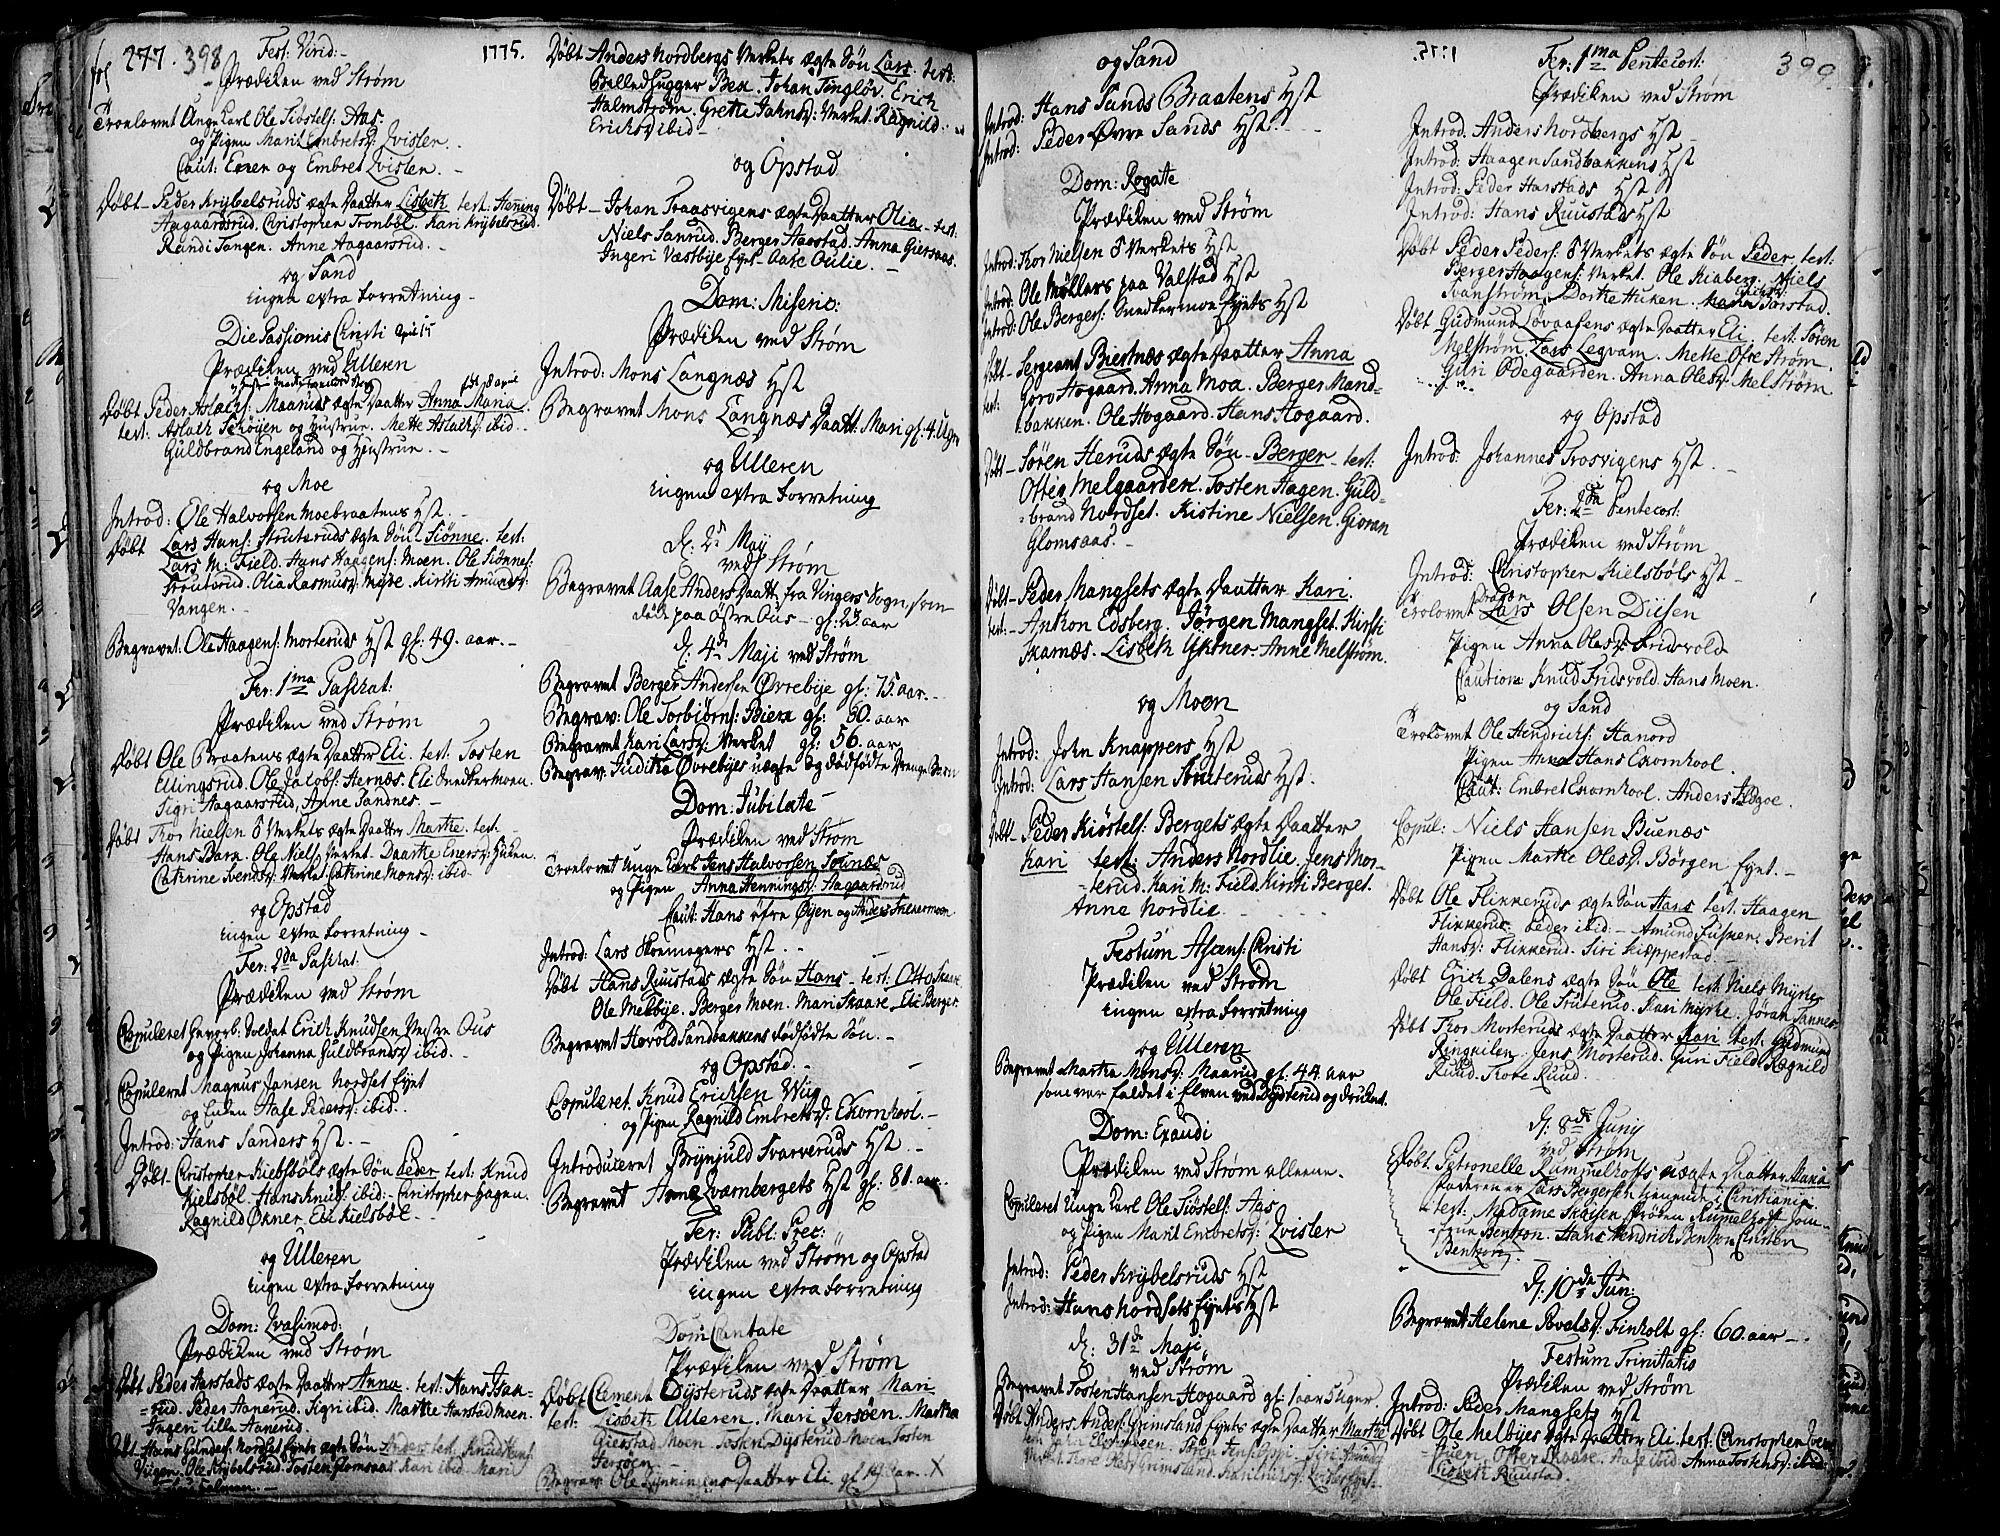 277. 398
Fest: Virid:
1775.
Prædiken ved Strøm
Troelovet Unge Karl Ole Siöstels: Aas
og Pigen Marit Embretsd: Qvislen
Caut: Even og Embret Qvislen.
Döbt Peder Krÿbelsruds ægte Daatter Lisbeth test: Hening
Aagaardsrud. Christopher Tronböl. Kari Krÿbelsrud.
Randi Tangen. Anne Aagaarsrud.
og Sand
Ingen extra Forretning
Die Passionis Christi
Prædiken ved Ulleren
Döbt Peder Aslachs: Maaruds ægte Daatter Anna Maria.
test: Aslach Schöÿen og Hustrue. Mette Aslachsd: ibid
Guldbrand Engeland og Hustrue.
og Moe
Introd: Ole Halvorsen Moebraatens Hst.
Döbt Lars Hans: Struteruds ægte Sön Siönne. test:
Lars M: Field. Hans Haagens: Moen. Ole Siönnes:
Struterud. Olia Rasmusd: Mÿre. Kirsti Amundsd:
Vangen.
Begravet: Ole Haagens: Morteruds Hst gl: 49. aar.
Fer: 1ma Paschat:
Prædiken ved Strøm
Döbt Ole Braatens ægte Daatter Eli. test: Tosten
Ellingsrud. Ole Jacobs: Hernæs. Eli Snekkermoen.
Sigri Aagaarsrud, Anne Sandnes.
Döbt Thor Nielsen S Verkets ægte Daatter Marthe. test.
Hans Bara. Ole Niels: Verket. Daarthe Enersd: Huken.
Catrine Svendsd: Verket. Catrine Monsd: ibid
og Opstad
Ingen extra Forretning
Fer: 2da Paschat:
Prædiken ved Strøm
Copuleret Gevorb: Soldat Erich Knudsen Vestre Ous
og Pigen Johanna Guldbrandsd: ibid.
Copuleret Magnus Jansen Nordset Eÿet
og Enken Aase Pedersd: ibid.
Introd: Hans Sanders Hst.
Döbt Christopher Kielsböls ægte Sön Peder test: Knud
Kielsböl. Hans Knuds: ibid. Christopher Hagen.
Ragnild Økner. Eli Kielsböl
og Ulleren
Ingen extra Forretning
Dom: Qvasimod:
Prædiken ved Strøm
Döbt Peder Harstads ægte Daatter Anna. test: Hans Isak=
=rud. Peder Hanerud. Sigri ibid. Marthe Harstad Moen.
Ingeri Lille Hanerud.
Döbt Hans Gunders: Nordset Eÿets ægte Sön Anders test: Knud Hans:
Viigen. Ole Krÿbelsrud. Tosten Glomsaas. Kari ibid. Mari
Döbt Anders Nordbergs Verkets ægte Sön Lars. test:
Belledhugger Bex. Johan Tinglöv. Erich
Halmström. Grethe Jahnsd: Verket. Ragnild
Ericksd: ibid
og Opstad
Döbt Johan Traasvigens ægte Daatter Olia. test:
Niels Sanrud. Berger Aarstad. Anna Giersaas.
Ingeri Væstbÿe Eÿet. Aase Oulie.
Dom: Miseric:
Prædiken ved Strøm
Introd: Mons Langnæs Hst
Begravet Mons Langnæs Daatt: Mari gl: 4. Uger
og Ulleren
Ingen extra Forretning
d: 2d Maij
ved Strøm
Begravet Aase Anders Daatt. fra Vingers Sogn, som
döde paa Östre Ous gl: 23 aar
d: 4de Maji ved Strøm
Begravet Berger Andersen Øvrebÿe gl: 75. aar.
Begrav: Ole Torbiörns: Biere gl: 60. aar
Begravet Kari Larsd: Verket gl: 56. aar
Begrav: Judithe Øvrebÿes uægte og dödfödte Drenge Barn
Dom: Jubilate
Prædiken ved Strøm
Troelovet Unge Karl Jens Halvorsen Sornæs
og Pigen Anna Henningsd: Aagaardsrud
Caut: Hans öfre Öÿen og Anders Snekermoen
Introd: Lars Skoemagers Hst.
Döbt Hans Ruustads ægte Sön Hans. test: Otto Skaare
Ole Melbÿe. Berger Moen. Mari Skaare. Eli Berger.
Begravet Harold Sandbakkens dödfödte Sön.
og Opstad.
Copuleret Knud Ericksen Wiig
og Pigen Ragnild Embretsd: Exornhool.
Introduceret Brÿnjuld Svarveruds Hst
Begravet Anne Qværnbergets Hst gl: 81. aar.
Fer: Publ: Prec:
Prædiken ved Strøm og Opstad
ingen extra Forretning
Dom: Cantate
Prædiken ved Strøm
Döbt Clement Dÿsteruds ægte Daatter Mari
test: Lisbeth Ulleren. Mari Jersöen. Marthe
Gierstad Moen. Tosten Dÿsterud Moen. Tosten
Jersöen.
Begrav: Ole Daatter Eli. gl: aar. X
og Sand
Introd: Hans Sands Braatens Hst
Introd: Peder Øvre Sands Hst.
Dom: Rogate
Prædiken ved Strøm
Introd: Thor Nielsen S Verkets Hst
Introd: Ole Möllers paa Valstad Hst
Introd: Ole Bergers: Snekermoe Eÿets Hst
Döbt Sergeant Biestnæs ægte Daatter Anna
test: Goro Hogaard. Anna Moe. Berger Mand=
bakken. Ole Hogaard. Hans Hogaard.
Döbt Sören Heruds ægte Sön Berger test:
Otter Melgaarden. Tosten Hagen. Guld=
=brand Nordset. Kistine Nielsen. Gioran
Glomsaas.
Döbt Peder Mangsets ægte Daatter Kari.
test: Ankon Edsberg. Jörgen Mangset. Kirsti
Skarnæs. Lisbeth Ykner. Anne Melström.
og Moen
Introd: John Knappers Hst
Introd: Lars Hansen Struteruds Hst.
Döbt Peder Kiöstels: Bergets ægte Daatter
Kari test: Anders Nordlie. Jens Mor=
=terud. Kari M: Field. Kirsti Berget.
Anne Nordlie
Festum Ascens: Christi
Prædiken ved Strøm
Ingen extra Forretning
og Ulleren
Begravet Marthe Monsd: Maarud gl: 44 aar
som var faldet i Elven ved Dÿsterud og druknet.
Dom: Exaudi
Prædiken ved Strøm allene.
Copuleret Unge Karl Ole Siöstels: Aas
og Pigen Marit Embretsd: Qvislen
Introd: Peder Krÿbelsruds Hst
Introd: Hans Nordsets Eÿets Hst
d: 31de Maji
ved Strøm
Begravet Tosten Hansen Hogaard gl: 1 aar 5 Uger.
Döbt Anders Anders: Grimsland Eÿets ægte Daatter Marthe
1775.
Fer: 1ma Pentecost:
399.
Prædiken ved Strøm
Introd: Anders Nordbergs Hst
Introd: Haagen Sandbakkens Hst
Introd: Peder Harstads Hst
Introd: Hans Ruustads Hst
Döbt Peder Peders: S Verkets ægte Sön Peder. test:
Berger Haagens: Verket. Ole Kiaberg. Niels
Svanström. Dorthe Huken. Maria Harstad.
Döbt Gudmund Lövaasens ægte Daatter Eli. test: Sören
Melström. Lars Legvam. Mette Ofre Strøm.
Guri Ödegaarden. Anna Olesd: Melström
og Opstad
Introd: Johannes Trosvigens Hst.
Fer: 2da Pentecost:
Prædiken ved Strøm
Introd: Christopher Kielsböls Hst
Troelovet Dragon Lars Olsen Diisen
Pigen Anna Olesd: Fridsvold
Caution: Knud Fridsvold. Hans Moen.
og Sand
Troelovet Ole Hendrichs: Hanord
Pigen Anna Hans Exornhool.
Caut: Embret Exornhool. Anders
Copul: Niels Hansen Buenæs
Pigen Marthe Olesd: Börgen Eÿet.
Döbt Ole Flikkeruds ægte Sön Hans test: Haagen
Flikkerud. Peder ibid. Amund Fusker. Berit
Hansd: Flikkerud. Siri Kieppestad
Döbt Erich Dalens ægte Sön Ole test: Niels Mÿrer
Ole Field. Ole Struterud. Kari Mÿrhe. Jöran Tannes.
Döbt Thor Morteruds ægte Daatter Kari test: Gudmund
Ringnilen. Jens Morterud. Guri Field. Ragnild
Ruud. Tore Ruud.
d: 8de Junij
ved Strøm
Döbt. Petronelle Rummelhoffs uægte Daatter Maria
Faderen er Lars Bergersen tienende i Christiania
test: Madame Skaisen. Fröken Rumelhoff. Jom=
=frue Bentzon. Hans Hendrich Bentzon. Christen
Bentzon.
d: 10de Jun:
Begravet Helene Povelsd: Finholt gl: 60. aar
Festum Trinitatis
Prædiken ved Strøm
Introd: Peder Mangsets Hst
Döbt Ole Melbÿes ægte Daatter Eli. test: Christopher
Huen. Otter Skaare. Aase ibid. Anna Tostensd: ibid:
Lisbeth Ruustad.